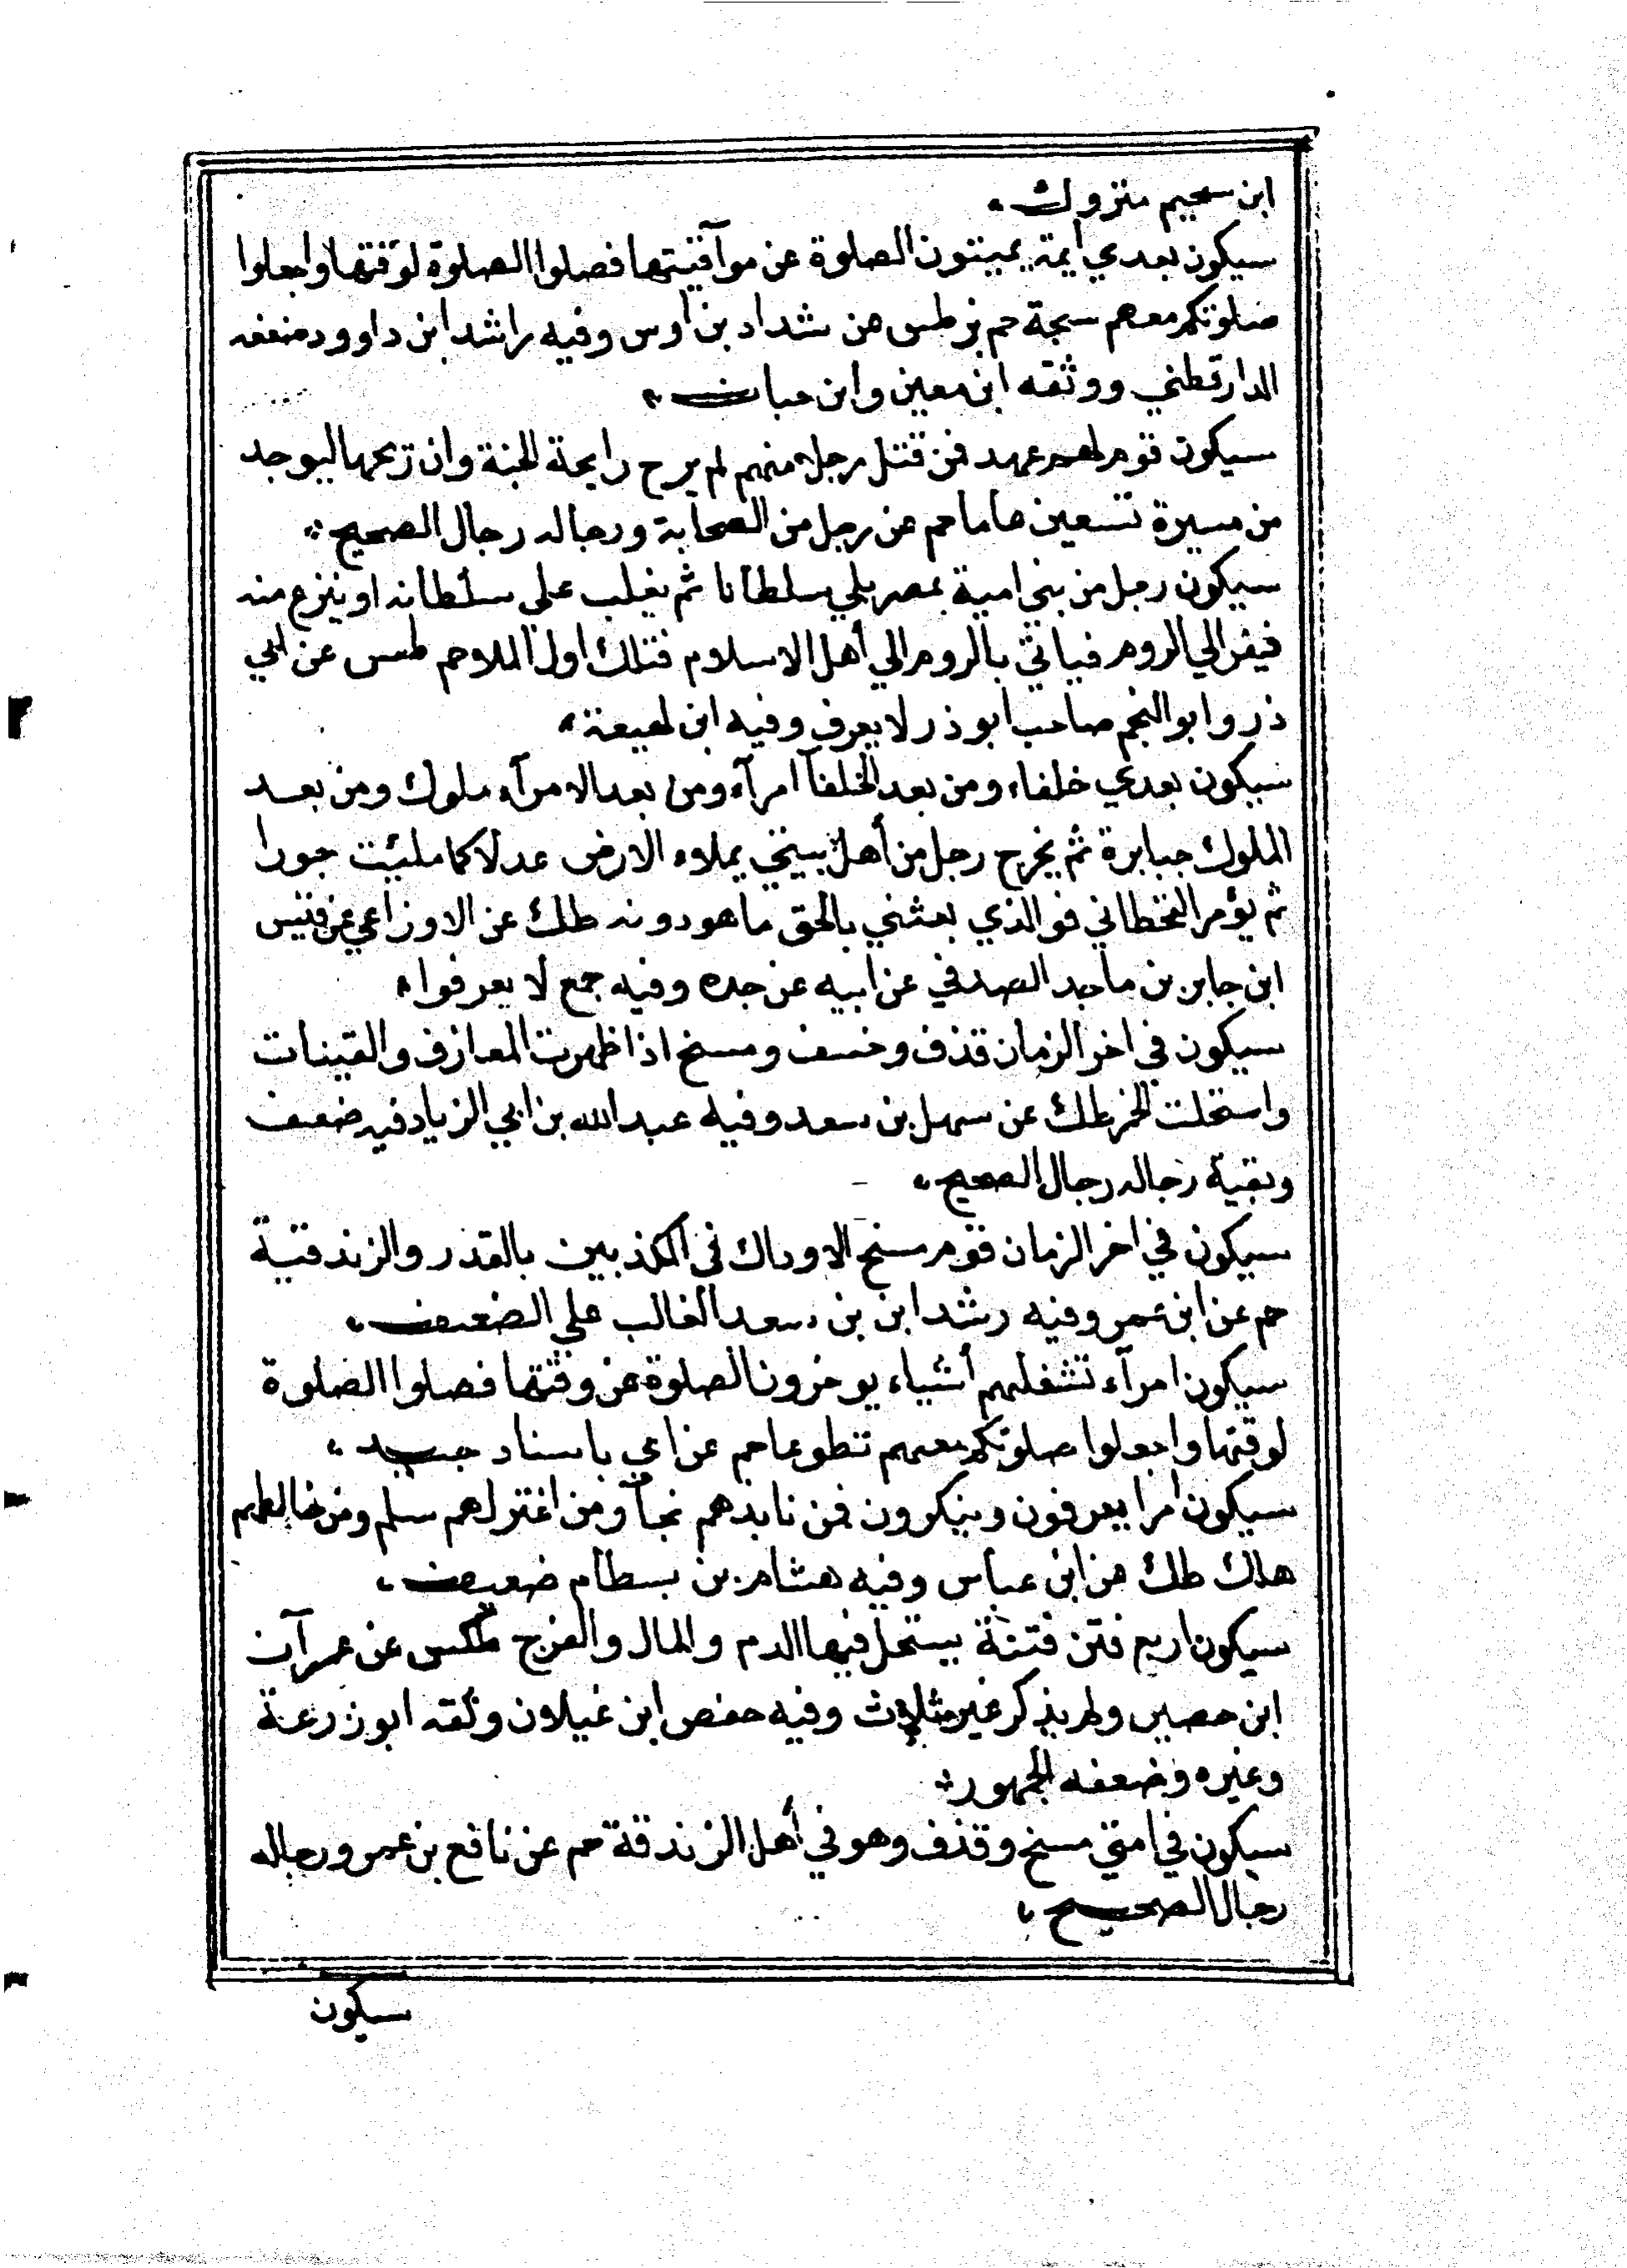 ابن سحيم متروك
سيكون بعدي ايمة يميتون الصلوة عن مواقيتها فصلوا الصلوة لوقتها واجعلوا
صلوتكم معهم سبحة حم بز طس عن شداد بن اوس وفيه راشد ابن داوود ضعفه
الدارقطني ووثقه ابن معين وابن حبان
سيكون قوم لهم عهد فمن قتل رجلا منهم لم يرح رايحة الجنة وان ريحها ليوجد
من مسيرة تسعين عاما حم عن رجل من الصحابة ورجاله رجال الصحيح
سيكون رجل من بني امية بمصر يلي سلطانا ثم يغلب علي سلطانه او ينزع منه
فيفر الي الروم فياتي بالروم الي أهل الاسلام فتلك اول الملاحم طس عن ابي
ذر وابو النجم صاحب ابو ذر لا يعرف وفيه ابن لهيعة
سيكون بعدي خلفاء ومن بعد الخلفآ امرآء ومن بعد الامرآء ملوك ومن بعد
الملوك جبابرة ثم يخرج رجل من أهل بيتي يملاء الارض عدلا كما مليئت جورا
ثم يؤمر القحطاني فو الذي بعثني بالحق ما هو دونه طك عن الاوزاعي عن قيس
ابن جابر بن ماجد الصدفي عن ابيه عن جده وفيه جمع لا يعرفوا
سيكون في اخر الزمان قذف وخسف ومسخ اذا ظهرت المعازف والقينات
واستحلت الخمر طك عن سهل بن سعد وفيه عبد الله بن ابي الزياد فيه ضعف
وبقية رجاله رجال الصحيح
سيكون في اخر الزمان قوم مسخ الا وذاك في المكذبين بالقدر والزندقية
حم عن ابن عمر وفيه رشد ابن بن سعد الغالب علي الضعف
سيكون امرآء تشغلهم أشياء يوخرون الصلوة عن وقتها فصلوا الصلوة
لوقتها واجعلوا صلوتكم معهم تطوعا حم عن ابي باسناد جيد
سيكون امرا يعرفون وينكرون فمن نابذهم نجآ ومن اعتزلهم سلم ومن خالطهم
هلك طك عن ابن عباس وفيه هشام بن بسطام ضعيف
سيكون اربع فتن فتنة يستحل فيها الدم والمال والفرج طكس عن عمرآن
ابن حصين ولم يذكر غير ثلاث وفيه حفص ابن غيلان وثقه ابو زرعة
وغيره وضعفه الجمهور
سيكون في امتي مسخ وقذف وهو في أهل الزندقة حم عن نافع بن عمر ورجاله
رجال الصحيح
سيكون